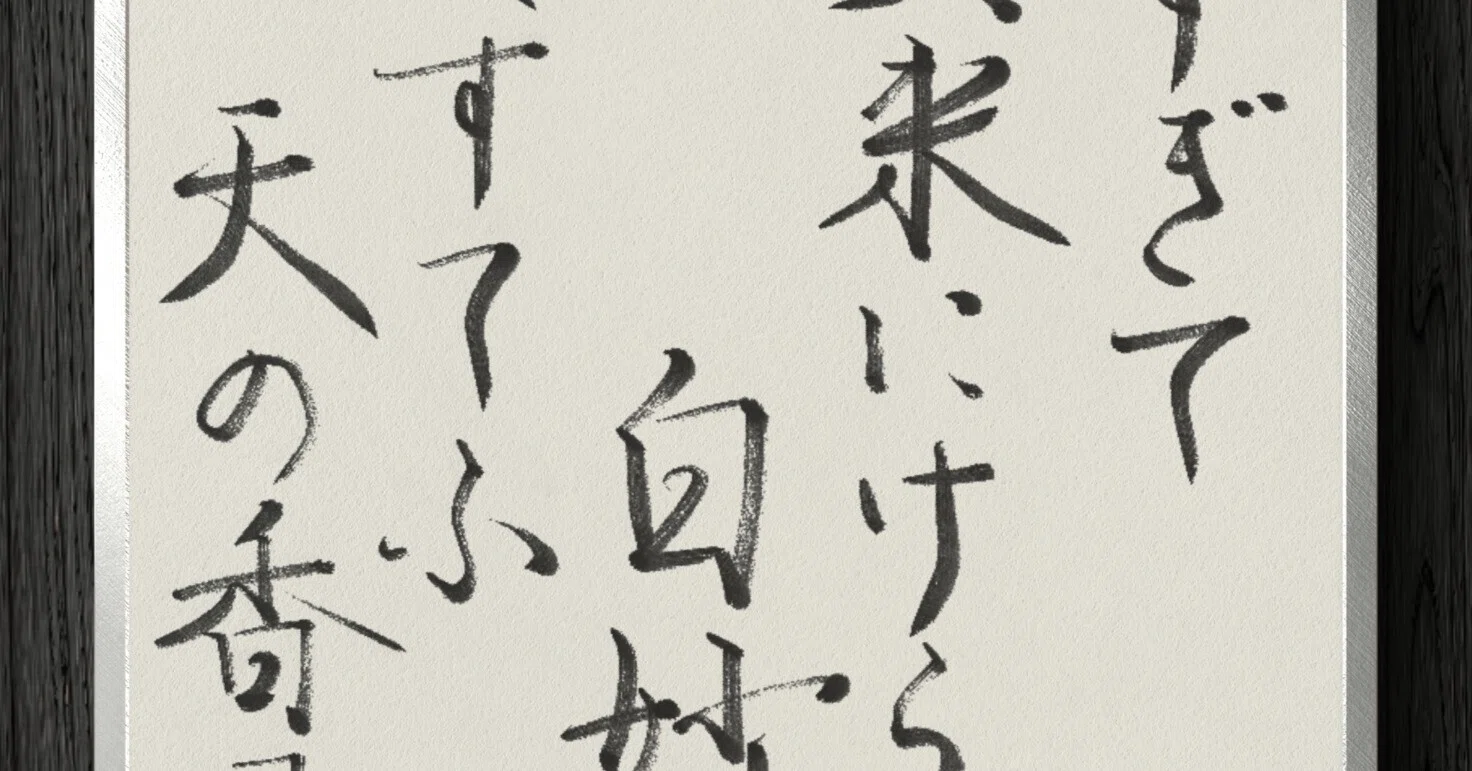 すぎて
来にけら
白妙
すてふ
天の香